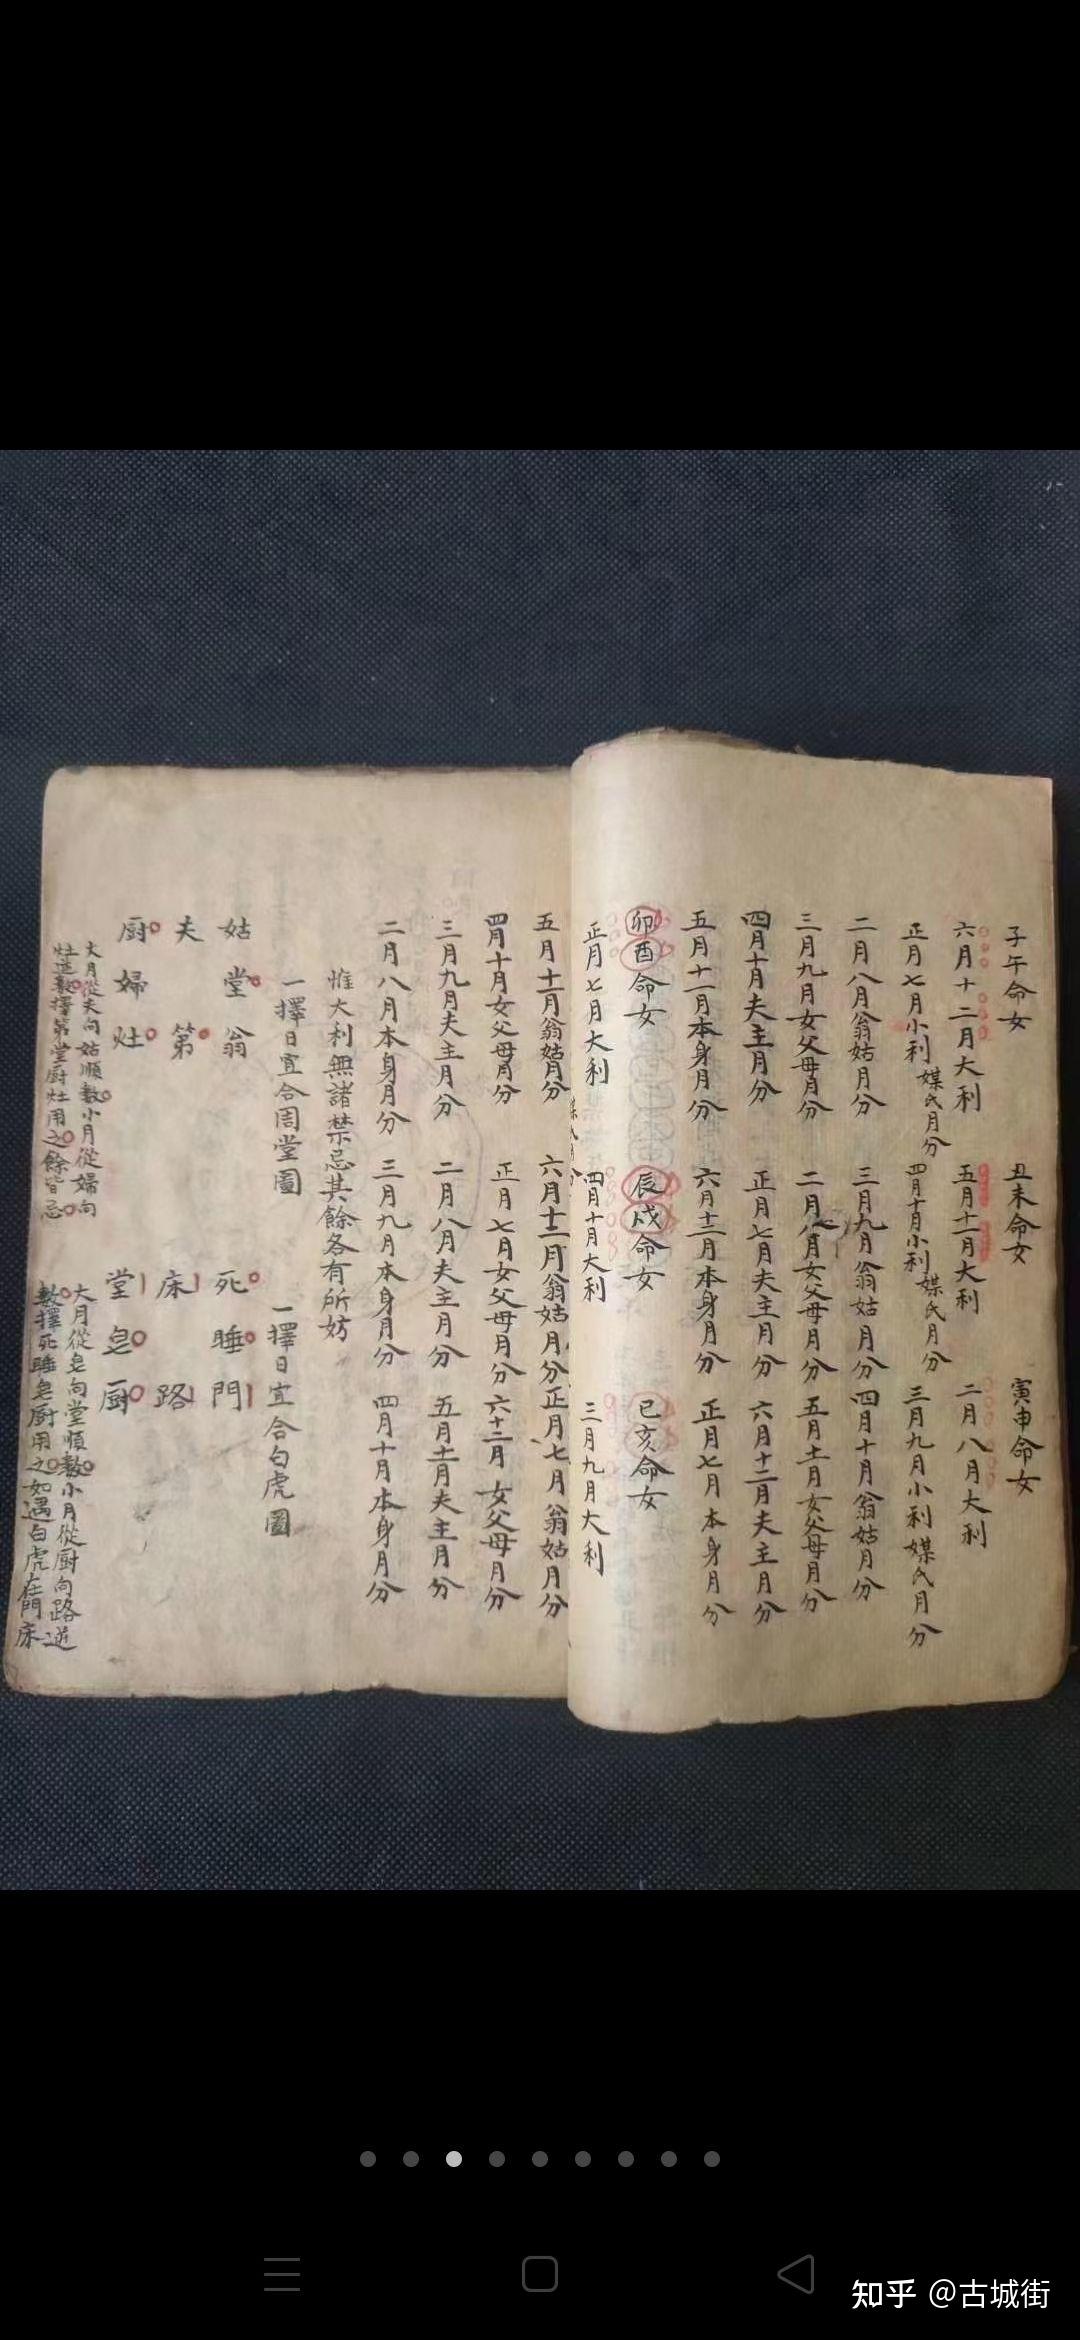 子午命女　丑未命女　寅申命女
六月十二月大利　五月十一月大利　二月八月大利
正月七月小利　媒氏月分　四月十月小利　媒氏月分　三月九月小利媒氏月分
二月八月翁姑月分　三月九月翁姑月分　四月十月翁姑月分
三月九月女父母月分　二月八月女父母月分　五月十一月女父母月分
四月十月夫主月分　正月七月夫主月分　六月十二月夫主月分
五月十一月本身月分　六月十二月本身月分　正月七月本身月分
卯酉命女　辰戌命女　巳亥命女
正月七月大利　四月十月大利　三月九月大利
五月十一月翁姑月分　六月十二月翁姑月分　正月七月翁姑月分
四月十月女父母月分　正月七月女父母月分　六十二月女父母月分
三月九月夫主月分　二月八月夫主月分　五月十一月夫主月分
二月八月本身月分　三月九月本身月分　四月十月本身月分
惟大利無諸禁忌其餘各有所妨
一擇日宜合周堂圖
姑堂翁
夫第
厨婦灶
大月從夫向姑順數小月從婦向
灶逆數擇第堂厨灶用之餘皆忌
一擇日宜合白虎圖
死睡門
床路
堂皂厨
大月從皂向堂順數小月從厨向路逆
數擇死睡皂厨用之如遇白虎在門床
知乎 @古城街